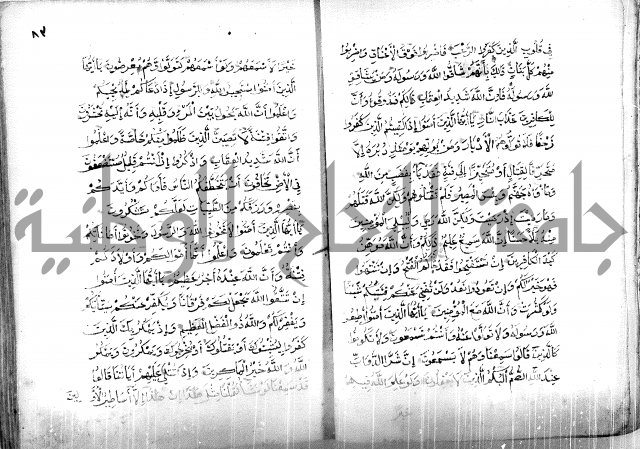 في قلوب الذين كفروا الرعب فاضربوا فوق الأعناق واضربوا
منهم كل بنان ذلك بأنهم شاقوا الله ورسوله ومن يشاقق
الله ورسوله فان الله شديد العقاب ذلكم فذوقوه وأن
للكافرين عذاب النار يا أيها الذين آمنوا إذا لقيتم الذين كفروا
زحفا فلا تولوهم الأدبار ومن يولهم يومئذ دبره إلا
متحرفا لقتال أو متحيزا إلى فئة فقد باء بغضب من الله
ومأواه جهنم وبئس المصير فلم تقتلوهم ولكن الله قتلهم
وما رميت إذ رميت ولكن الله رمى وليبلي المؤمنين
منه بلاء حسنا إن الله سميع عليم ذلكم وأن الله موهن
كيد الكافرين إن تستفتحوا فقد جاءكم الفتح وإن تنتهوا
فهو خير لكم وإن تعودوا نعد ولن تغني عنكم فئتكم شيئا
ولو كثرت وأن الله مع المؤمنين يا أيها الذين آمنوا أطيعوا
الله ورسوله ولا تولوا عنه وأنتم تسمعون ولا تكونوا
كالذين قالوا سمعنا وهم لا يسمعون إن شر الدواب
عند الله الصم البكم الذين لا يعقلون ولو علم الله فيهم
خير
٨٣
خيرا لأسمعهم ولو أسمعهم لتولوا وهم معرضون يا أيها
الذين آمنوا استجيبوا لله وللرسول إذا دعاكم لما يحييكم
واعلموا أن الله يحول بين المرء وقلبه وأنه إليه تحشرون
واتقوا فتنة لا تصيبن الذين ظلموا منكم خاصة واعلموا
أن الله شديد العقاب واذكروا إذ أنتم قليل مستضعفون
في الأرض تخافون أن يتخطفكم الناس فآواكم وأيدكم
بنصره ورزقكم من الطيبات لعلكم تشكرون
يا أيها الذين آمنوا لا تخونوا الله والرسول وتخونوا أماناتكم
وأنتم تعلمون واعلموا أنما أموالكم وأولادكم
فتنة وأن الله عنده أجر عظيم يا أيها الذين آمنوا
إن تتقوا الله يجعل لكم فرقانا ويكفر عنكم سيئاتكم
ويغفر لكم والله ذو الفضل العظيم وإذ يمكر بك الذين
كفروا ليثبتوك أو يقتلوك أو يخرجوك ويمكرون ويمكر
الله والله خير الماكرين وإذا تتلى عليهم آياتنا قالوا
قد سمعنا لو نشاء لقلنا مثل هذا إن هذا إلا أساطير الأولين
جامعة النجاح الوطنية